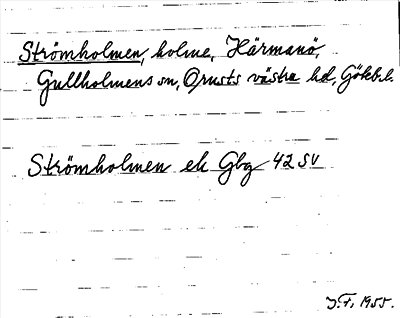 Strömholmen, holme, Härmanö,
Gullholmens sn, Orusts västra hd, Götebl.
Strömholmen ek Gbg 42 SV
J.F. 1955.